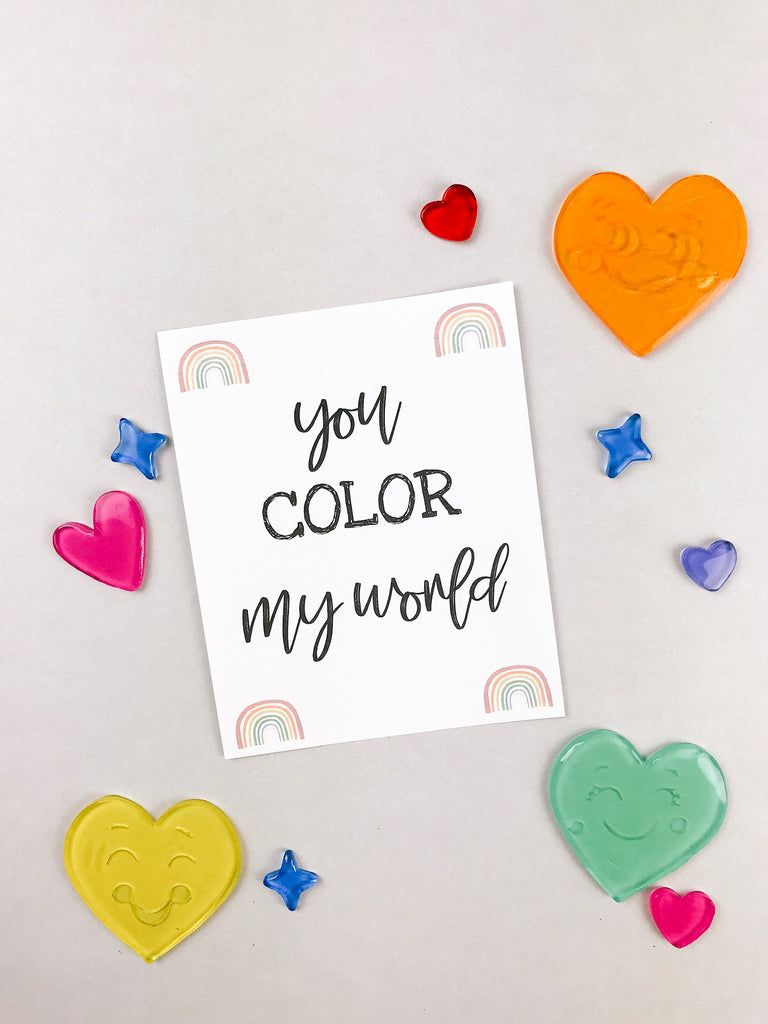 you
COLOR
my world